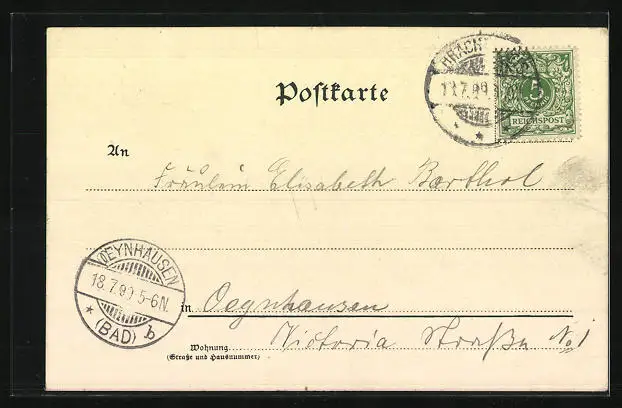 Postkarte
BRACKWEDE
18.7.99
5
REICHSPOST
An
Fräulein Elisabeth Barthol
OEYNHAUSEN
18.7.99 5-6N.
* (BAD) b
in Oeynhausen
Victoria Straße No 1
Wohnung
(Straße und Hausnummer)